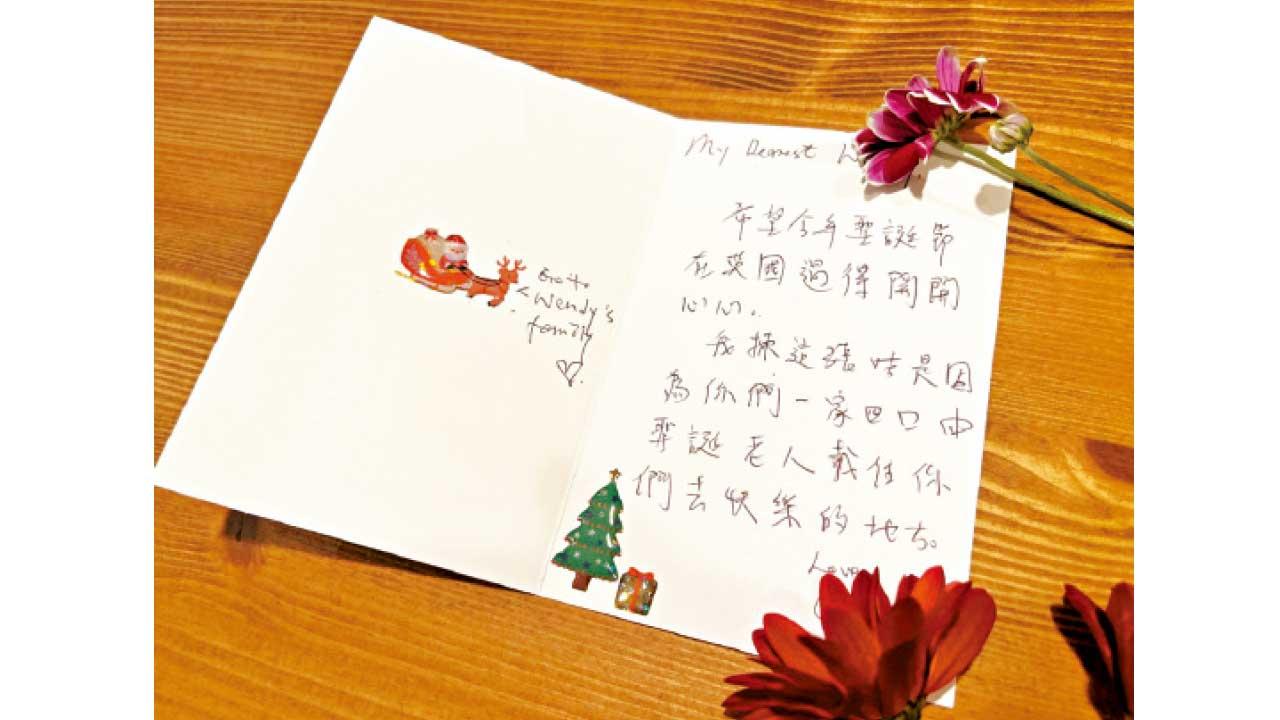 Go to
Wendy's
family
My Dearest
希望今年聖誕節
在英國過得開開
心心.
我揀這張咭是因
為你們一家四口由
聖誕老人載住你
們去快樂的地方。
Love